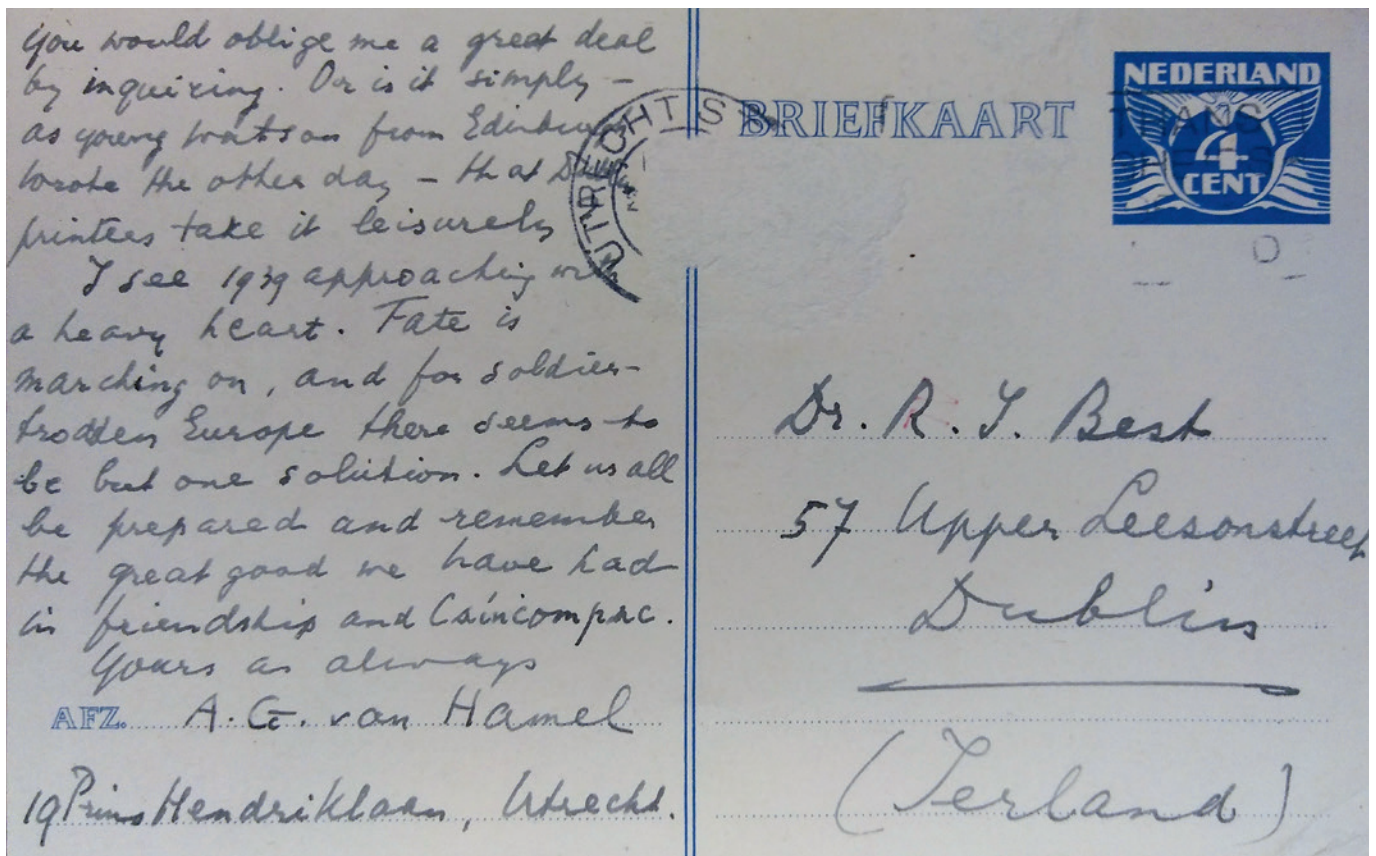 you would oblige me a great deal
by inquiring. Or is it simply –
as young Watson from Edinburgh
wrote the other day – that
printers take it leisurely
I see 1939 approaching with
a heavy heart. Fate is
marching on, and for soldier-
trodden Europe there seems to
be but one solution. Let us all
be prepared and remember
the great good we have had
in friendship and Caíncomrac.
Yours as always
AFZ. A. G. van Hamel
19 Prins Hendriklaan, Utrecht.
UTRECHT S
BRIEFKAART
NEDERLAND
4
CENT
Dr. R. I. Best
57 Upper Leesonstreet
Dublin
(Ierland)